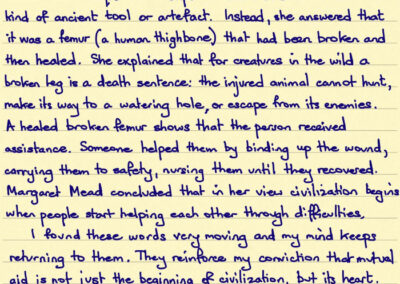 kind of ancient tool or artefact. Instead, she answered that
it was a femur (a human thighbone) that had been broken and
then healed. She explained that for creatures in the wild a
broken leg is a death sentence: the injured animal cannot hunt,
make its way to a watering hole, or escape from its enemies.
A healed broken femur shows that the person received
assistance. Someone helped them by binding up the wound,
carrying them to safety, nursing them until they recovered.
Margaret Mead concluded that in her view civilization begins
when people start helping each other through difficulties.
I found these words very moving and my mind keeps
returning to them. They reinforce my conviction that mutual
aid is not just the beginning of civilization, but its heart.